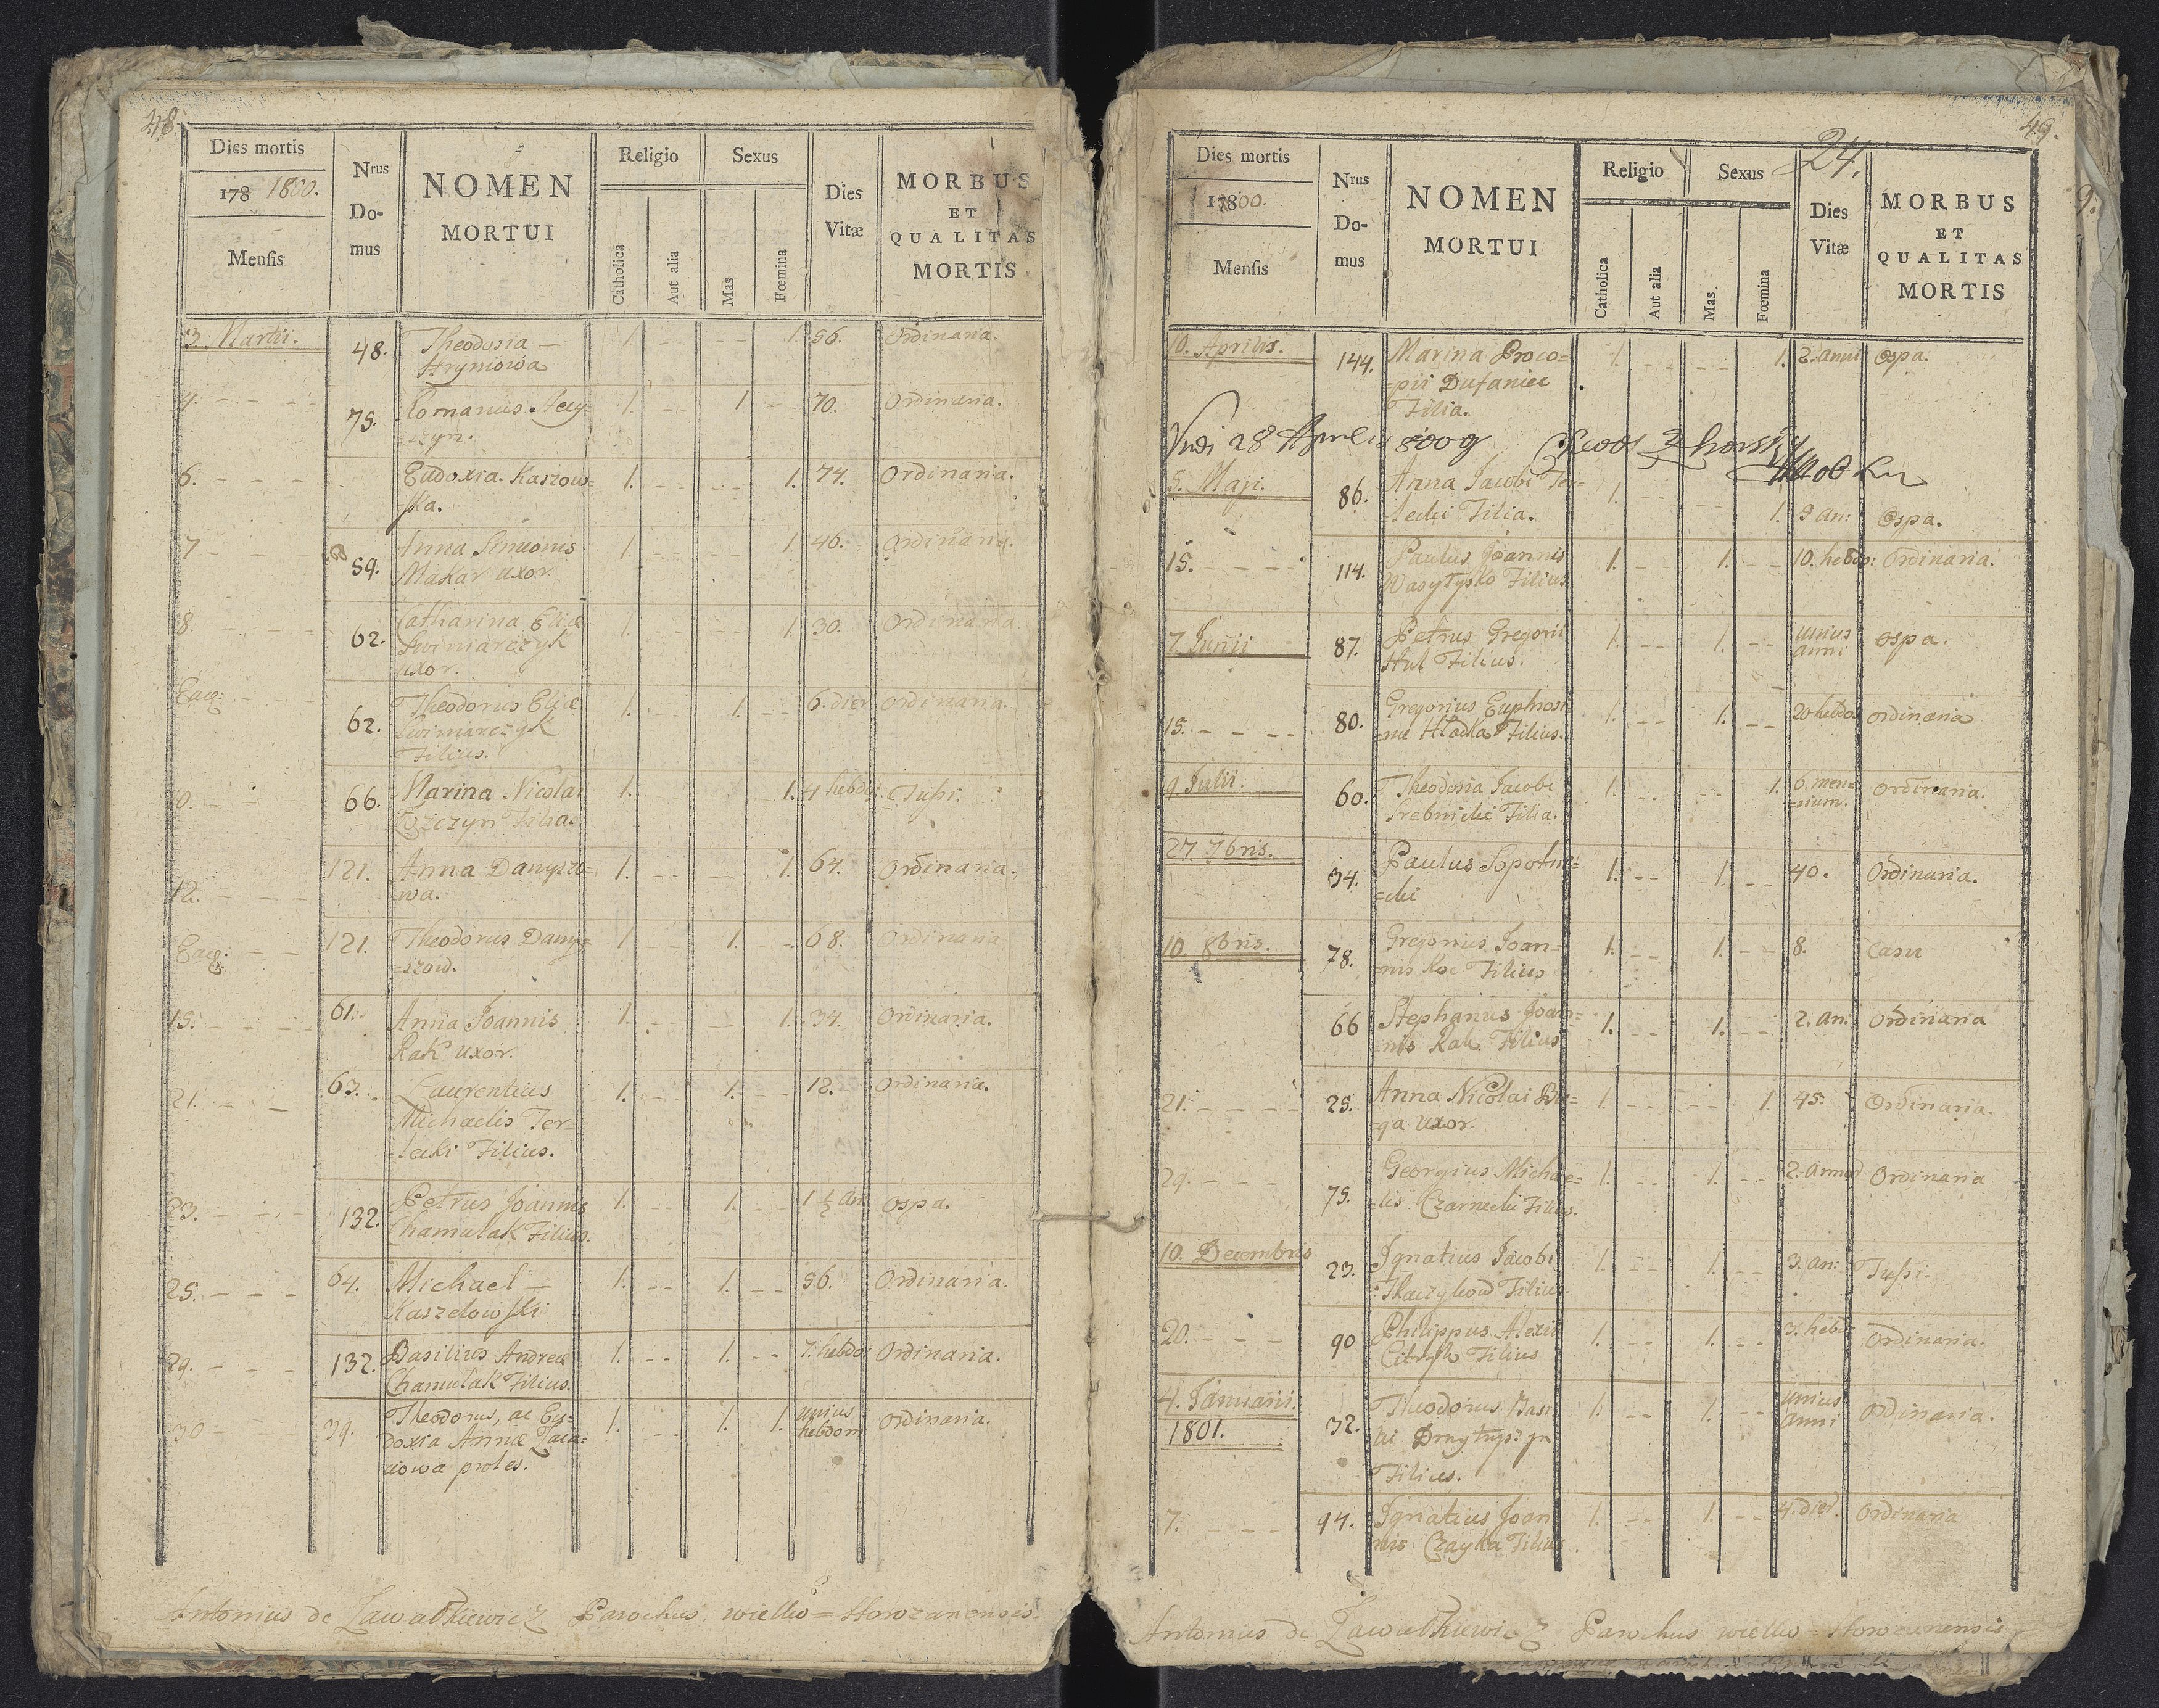 48.
Dies mortis
178 1800.
Mensis
Nrus
Do-
mus
NOMEN
MORTUI
Religio
Catholica
Aut alia
Sexus
Mas
Fœmina
Dies
Vitæ
MORBUS
ET
QUALITAS
MORTIS
3. Martii. 48. Theodosia — 1. - - - - 1. 56. Ordinaria.
Hryniowa
4. - - - 75. Romanus 1. - - 1. - 70. Ordinaria.
=czyn.
6. - - - Eudoxia Kaszow= 1. - - - - 1. 74. Ordinaria.
ska.
7 - - 59. Anna Simeonis 1. - - - - 1. 46. Ordinaria.
Makar uxor.
8. - - - 62. Catharina Eliæ 1. - - - - 1. 30. Ordinaria.
Swiniarczyk
uxor.
Eaq: - - 62. Theodorus Eliæ 1. - - 1. - - 6. dier. ordinaria.
Swiniarczyk
Filius.
10. - - 66. Marina Nicolai 1. 1. 4 hebdo: Tussi.
Filia.
12. - - - 121. Anna Danyszo= 1. - - - - 1. 64. Ordinaria.
=wa.
Eaq: - - 121. Theodorus Dany= 1. - - 1. - - 68. Ordinaria
=szow.
15. - - - 61. Anna Joannis 1. - - - - 1. 34. Ordinaria.
Rak uxor.
21. - - - 63. Laurentius 1. - - 1. - - 12. Ordinaria.
Michaelis Ter=
=lecki Filius.
23. - - - 132. Petrus Joannis 1. - - 1. - - 1 ½ an. Ospa.
Chamulak Filius.
25. - - - 64. Michael — 1. - - 1. - - 56. Ordinaria.
Kaszelowski
29. - - - 132. Basilius Andreæ 1. - - 1. - - 7. hebdo: Ordinaria.
Chamulak Filius.
30 - - - 39. Theodorus, ac Eu= 1. - - 1. 1. unius ordinaria.
doxia Annæ hebdom
proles.
Antonius de Zawadkiewicz Parochus wielko=Horozanensis.
49.
24.
Dies mortis
17800.
Mensis
Nrus
Do-
mus
NOMEN
MORTUI
Religio
Catholica
Aut alia
Sexus
Mas.
Fœmina
Dies
Vitæ
MORBUS
ET
QUALITAS
MORTIS
10. Aprilis. 144. Marina Proco= 1. - - - - 1. 2. anni Ospa.
=pii Dufaniec
Filia.
Vidi 28 Aprilis 800
5. Maji. 86. Anna Jacobi Ter= 1. - - - - 1. 3 an: Ospa.
lecki Filia.
15. - - - 114. Paulus Joannis 1. - 1. - - 10. hebdo: Ordinaria.
Wasylysko Filius
7. Junii 87. Petrus Gregorii 1. - - 1. - - unius ospa.
Hul Filius. anni
15. - - - - 80. Gregorius Euphrosi 1. - - 1. - - 20 hebdo ordinaria
=næ Hladka Filius.
9. Julii. 60. Theodosia Jacobi 1. - - - - 1. 6. men= Ordinaria.
Srebnicki Filia. =sium.
27. 7bris. 34. Paulus Sopotnic= 1. - - 1. - - 40. Ordinaria.
=cki
10. 8bris. 78. Gregorius Joan= 1. - - 1. - - 8. Casu
=nis Koc Filius
66 Stephanus Joan= 1. - - 1. - - 2. an: Ordinaria
=nis Filius
21. - - - 25. Anna Nicolai Bu= 1. - - - - 1. 45. Ordinaria.
=ga uxor.
29. - - - 75. Georgius Michae= 1. - - 1. - - 2. annor Ordinaria
=lis Czarnecki Filius.
10. Decembris 23. Ignatius Jacobi 1. - - 1. - - 3. an: Tussi.
Tkaczykow Filius.
20. - - - 90 Philippus Alexii 1. - - 1. - - 3. hebd: Ordinaria.
Filius
4. Januarii. 32. Theodorus Basi= 1. - - 1. - - unius Ordinaria.
1801. lii Dmytryszyn anni
Filius.
7. - - - 94. Ignatius Joan 1. - - 1. - - 4. dier. Ordinaria
nis Czayka Filius.
Antonius de Zawadkiewicz Parochus wielko=Horozanensis